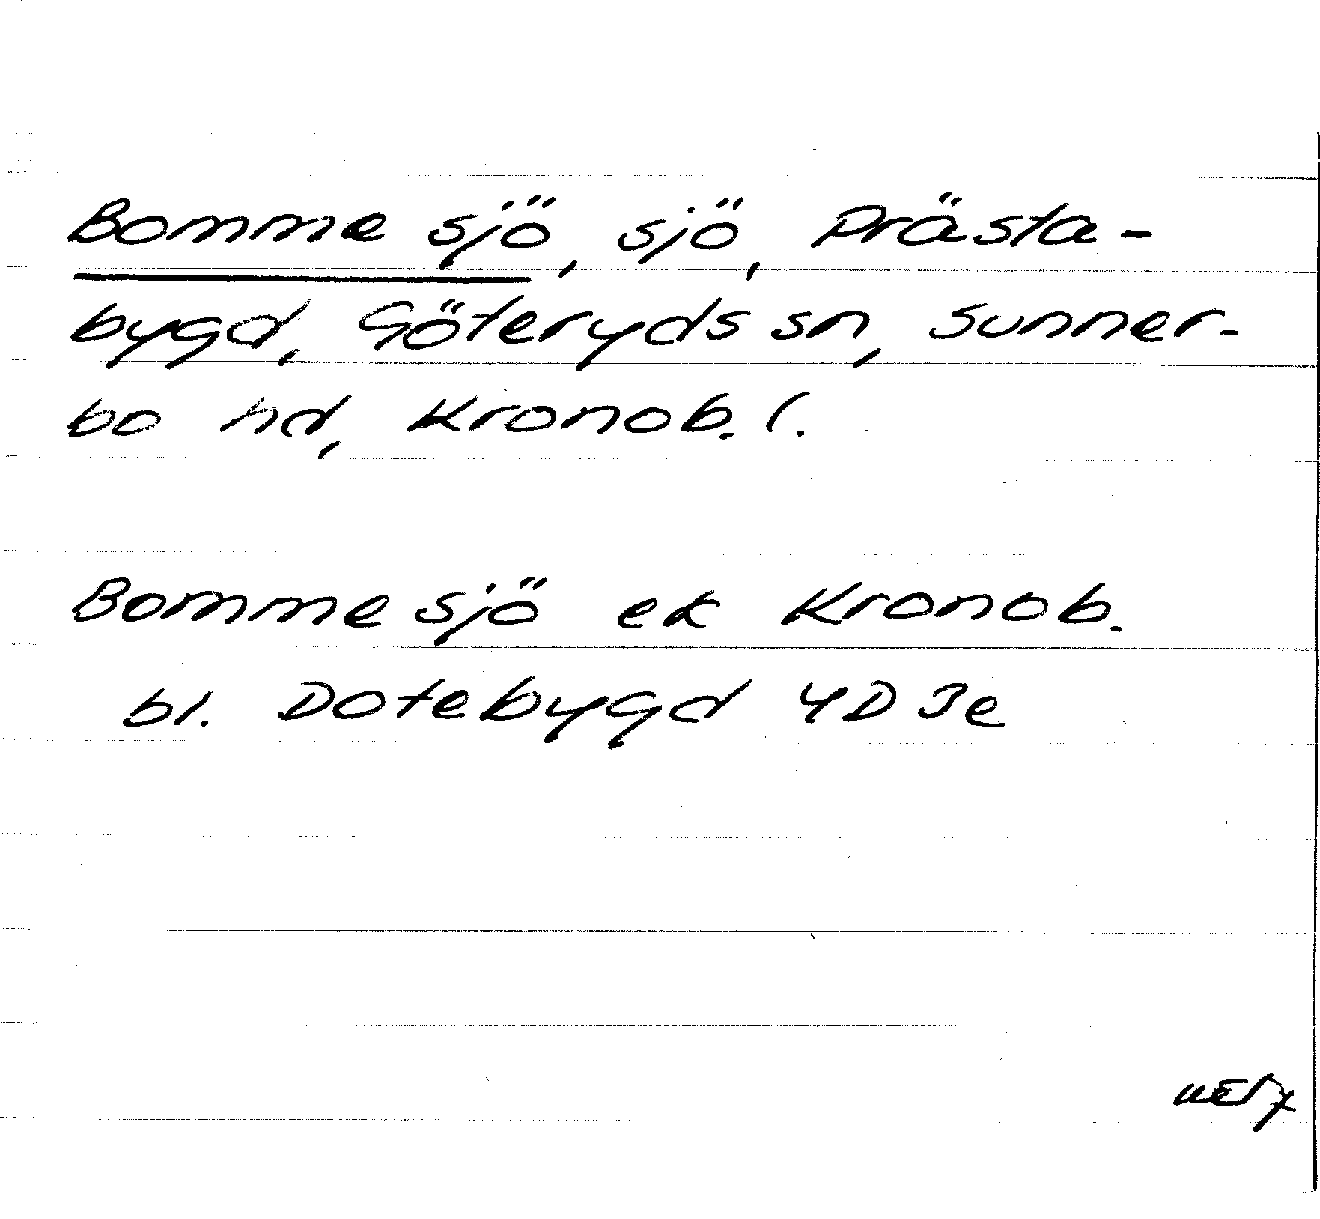 Bomme sjö, sjö, Prästa-
bygd, Göteryds sn, Sunner-
bo hd, Kronob. l.
Bomme sjö ek Kronob.
bl. Dotebygd 4D 3e